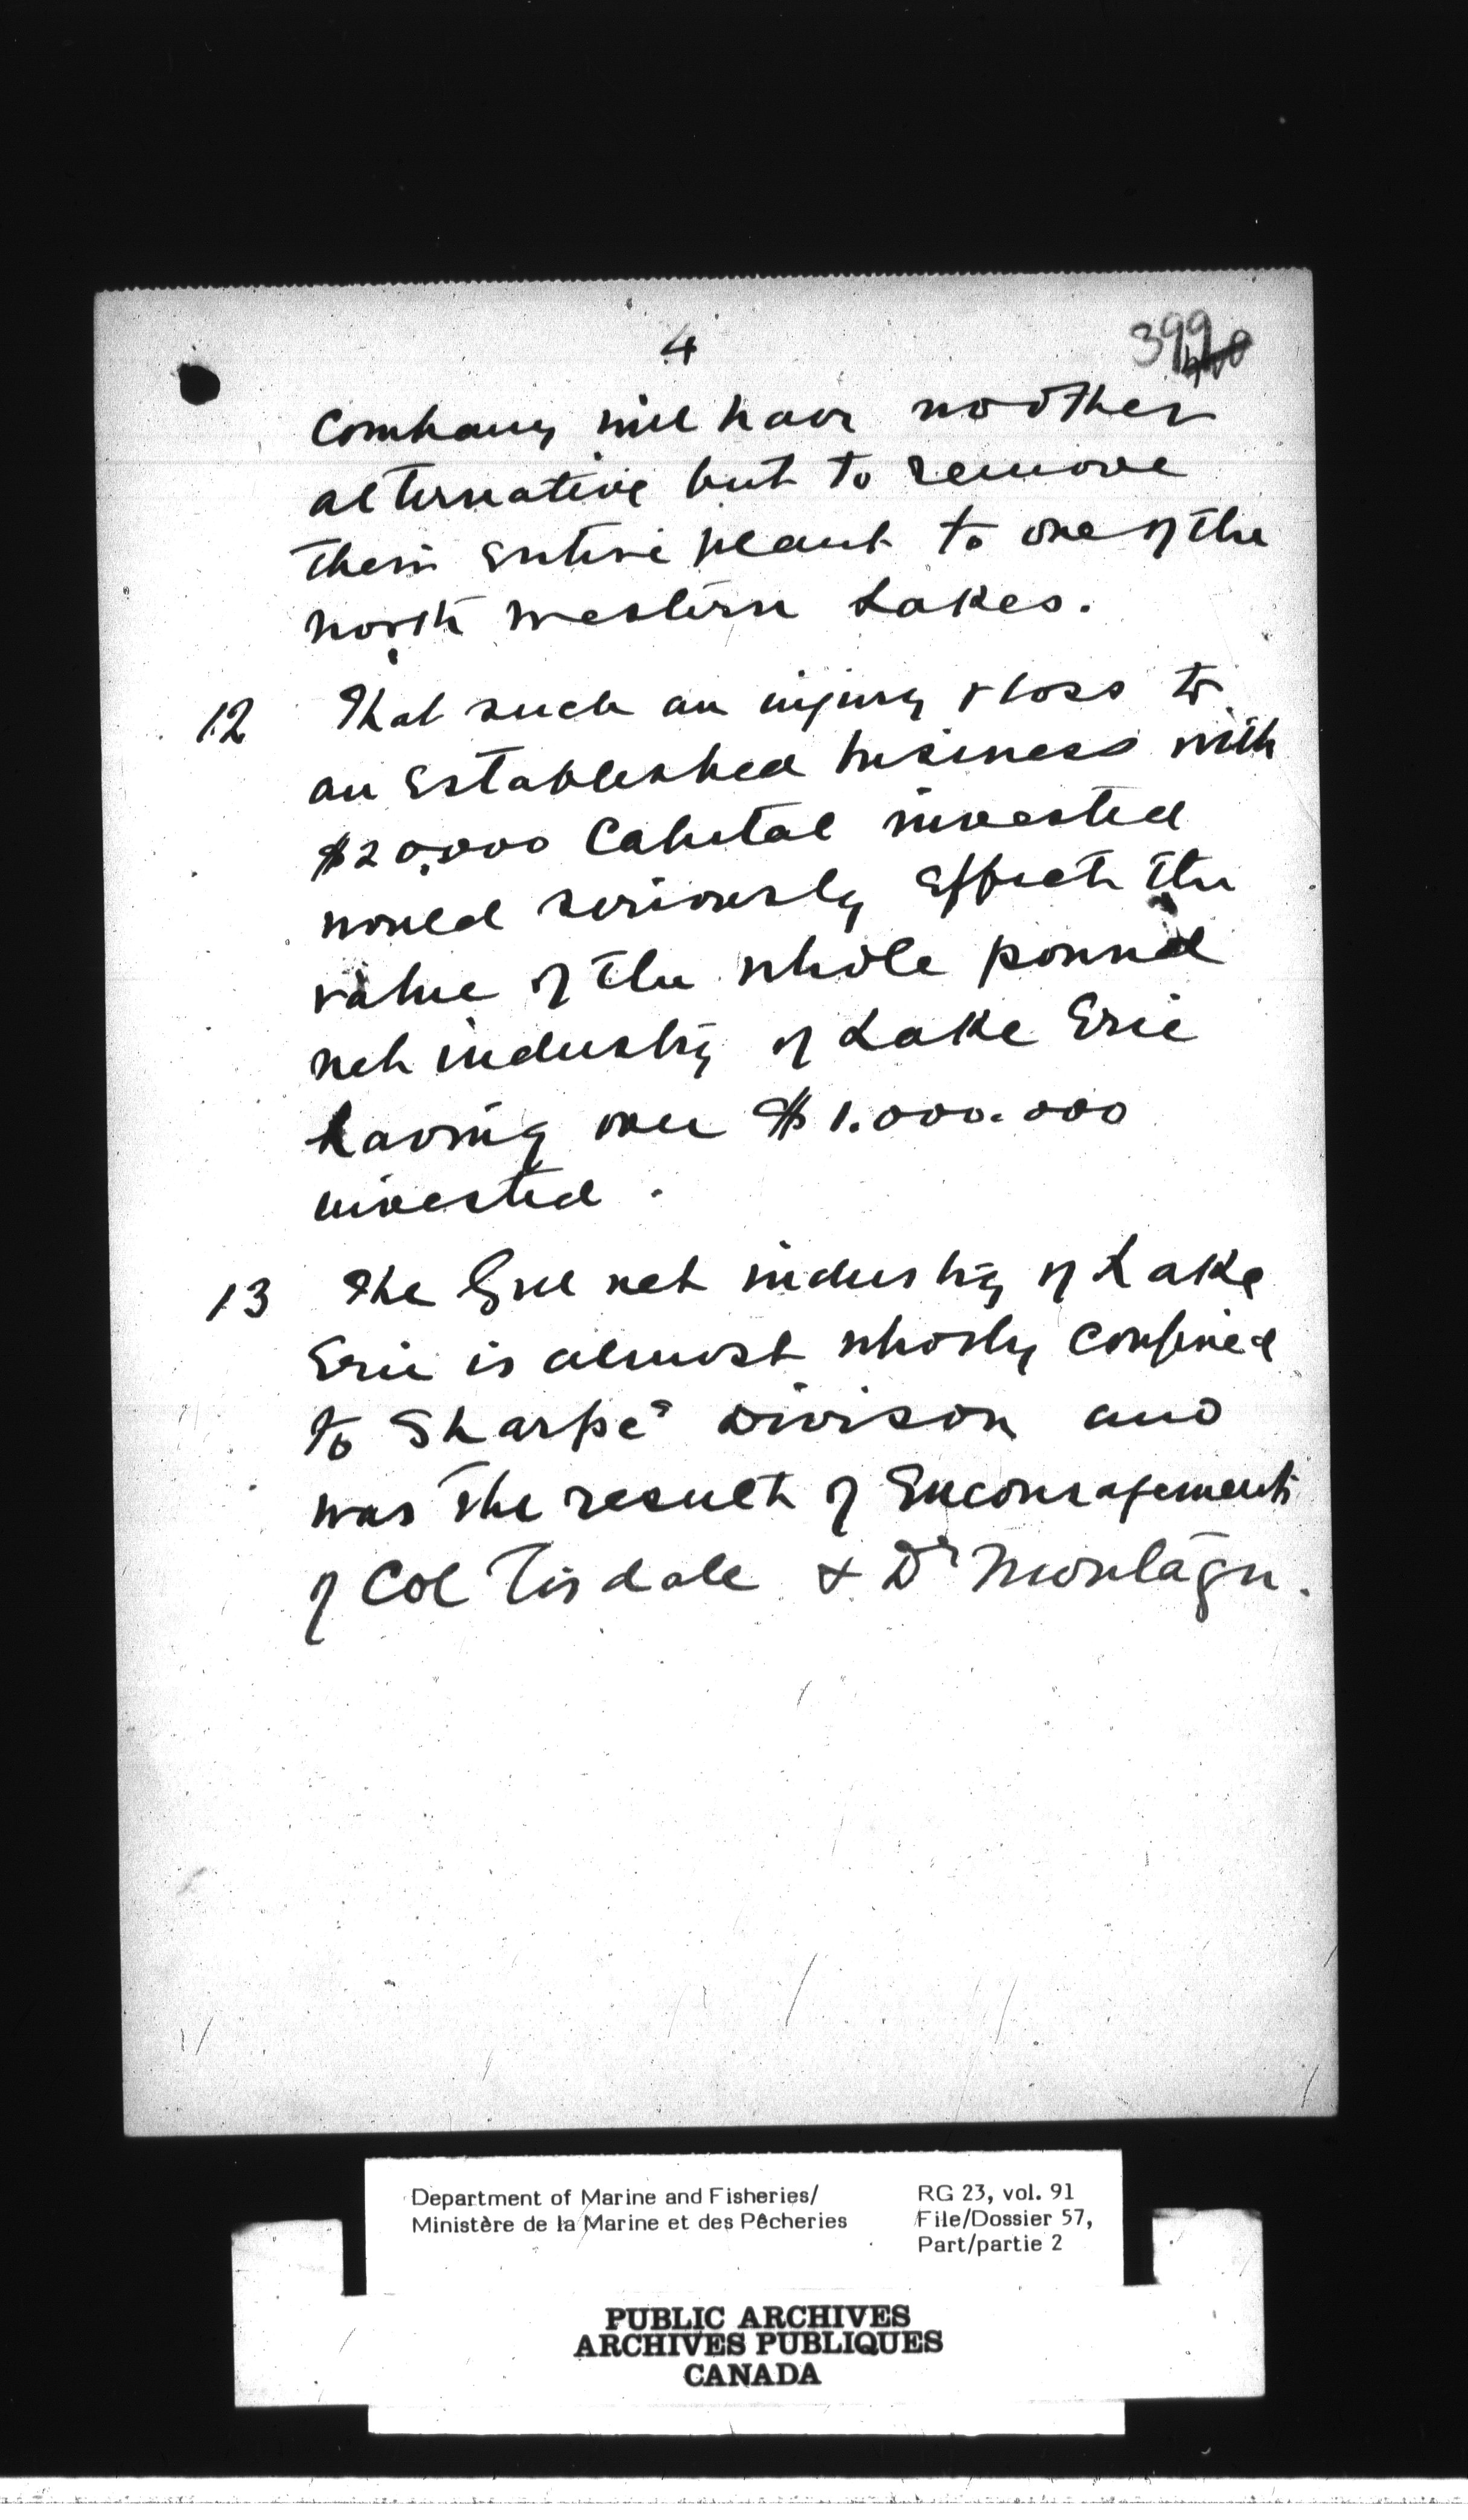 4
399
400
Company will have no other
alternative but to remove
their entire plant to one of the
north western Lakes.
12 That such an injury & loss to
an established business with
$20,000 Capital invested
would seriously effect the
value of the whole pound
net industry of Lake Erie
having over $1.000.000
invested.
13 The Gill net industry of Lake
Erie is almost wholly confined
to Sharpe's Divison and
was the result of Encouragement
of Col Tisdale & Dr Montagu.
Department of Marine and Fisheries/
Ministère de la Marine et des Pêcheries
RG 23, vol. 91
File/Dossier 57,
Part/partie 2
PUBLIC ARCHIVES
ARCHIVES PUBLIQUES
CANADA